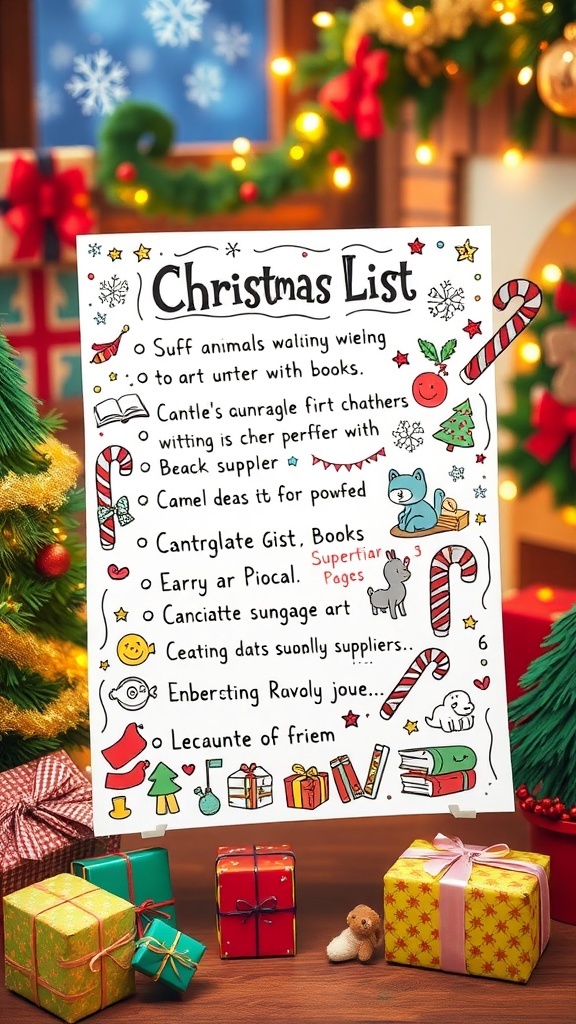 Christmas List
Suff animals waliiny wielng
to art unter with books.
Cantle's aunragle firt chathers
witting is cher perffer with
Beack suppler
Camel deas it for powfed
Cantrglate Gist, Books
Superfiar 3
Pages
Earry ar Piocal.
Canciatte sungage art
Ceating dats suoolly suppliers..
6
Enbersting Ravoly joue...
Lecaunte of friem